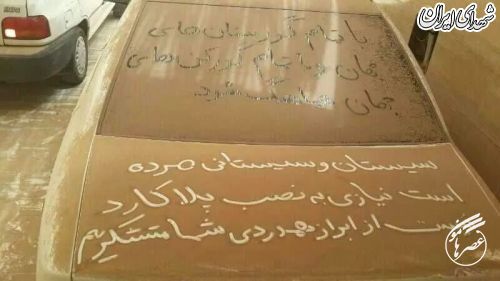 شهدای ایران
با تمام گورستان‌های
جهان و با تمام گورکن‌های
جهان هماهنگ شود
سیستان و سیستانی مرده
است نیازی به نصب پلاکارد
نیست از ابراز همدردی شما متشکریم
عصر هامون